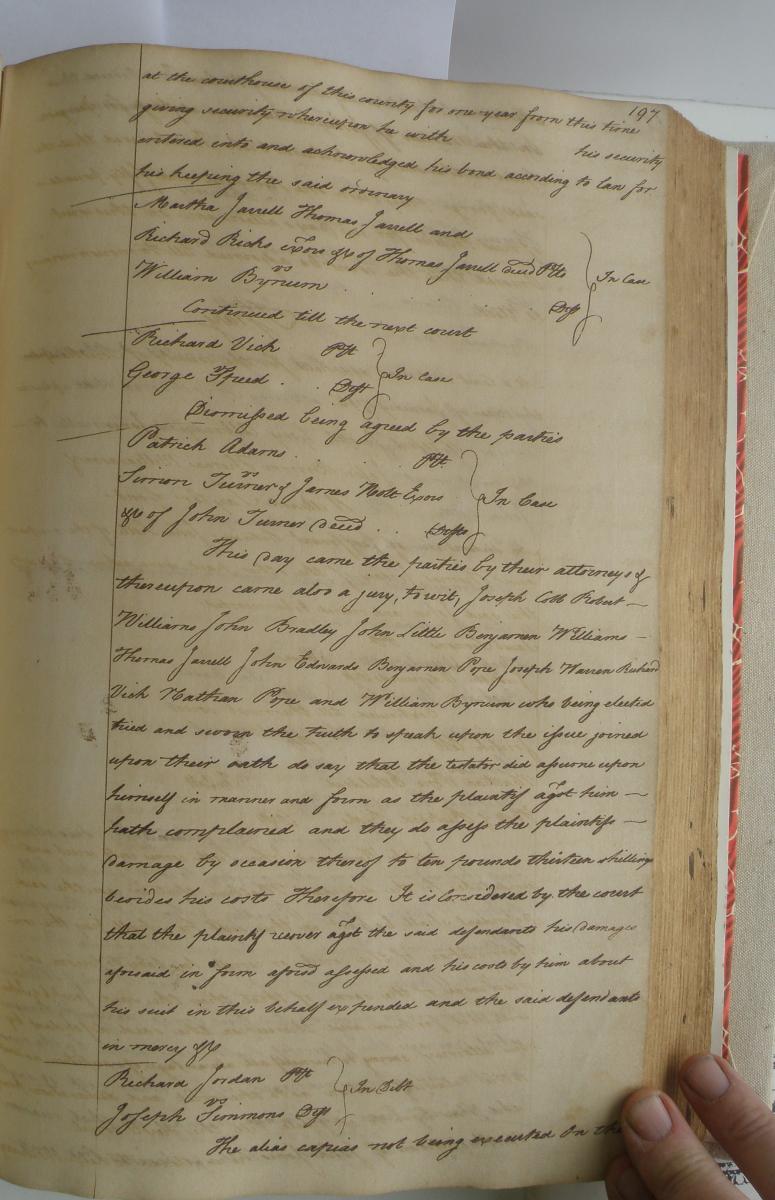 197
at the courthouse of this county for one year from this time
giving security whereupon he with his security
entered into and acknowledged his bond according to law for
his keeping the said ordinary
Martha Jarrell Thomas Jarrell and
Richard Ricks Exors &c of Thomas Jarrell decd Plts
vs
In Case
William Bynum . . . Deft
Continued till the next court
Richard Vick Plt
In Case
George . . Deft
Dismissed being agreed by the parties
Patrick Adams . . . Plt
vs
Simon Turner & James Holt Exors
In Case
&c of John Turner decd . . Defts
This day came the parties by their attorneys &
thereupon came also a jury, to wit, Joseph Cobb Robert —
Williams John Bradley John Little Benjamen Williams —
Thomas Jarrell John Edwards Benjamen Pope Joseph Warren Richard
Vick Nathan Pope and William Bynum who being elected
tried and sworn the truth to speak upon the issue joined
upon their oath do say that the testator did assume upon
himself in manner and form as the plaintif agst him —
hath complained and they do assess the plaintifs —
damage by occasion thereof to ten pounds thirteen shillings
besides his costs Therefore It is Considered by the court
that the plaintif recover agst the said defendants his damages
aforesaid in form aforsd assessed and his costs by him about
his suit in this behalf expended and the said defendants
in mercy &c
Richard Jordan Plt
vs
In Debt
Joseph Simmons Deft
The alias capias not being executed On the